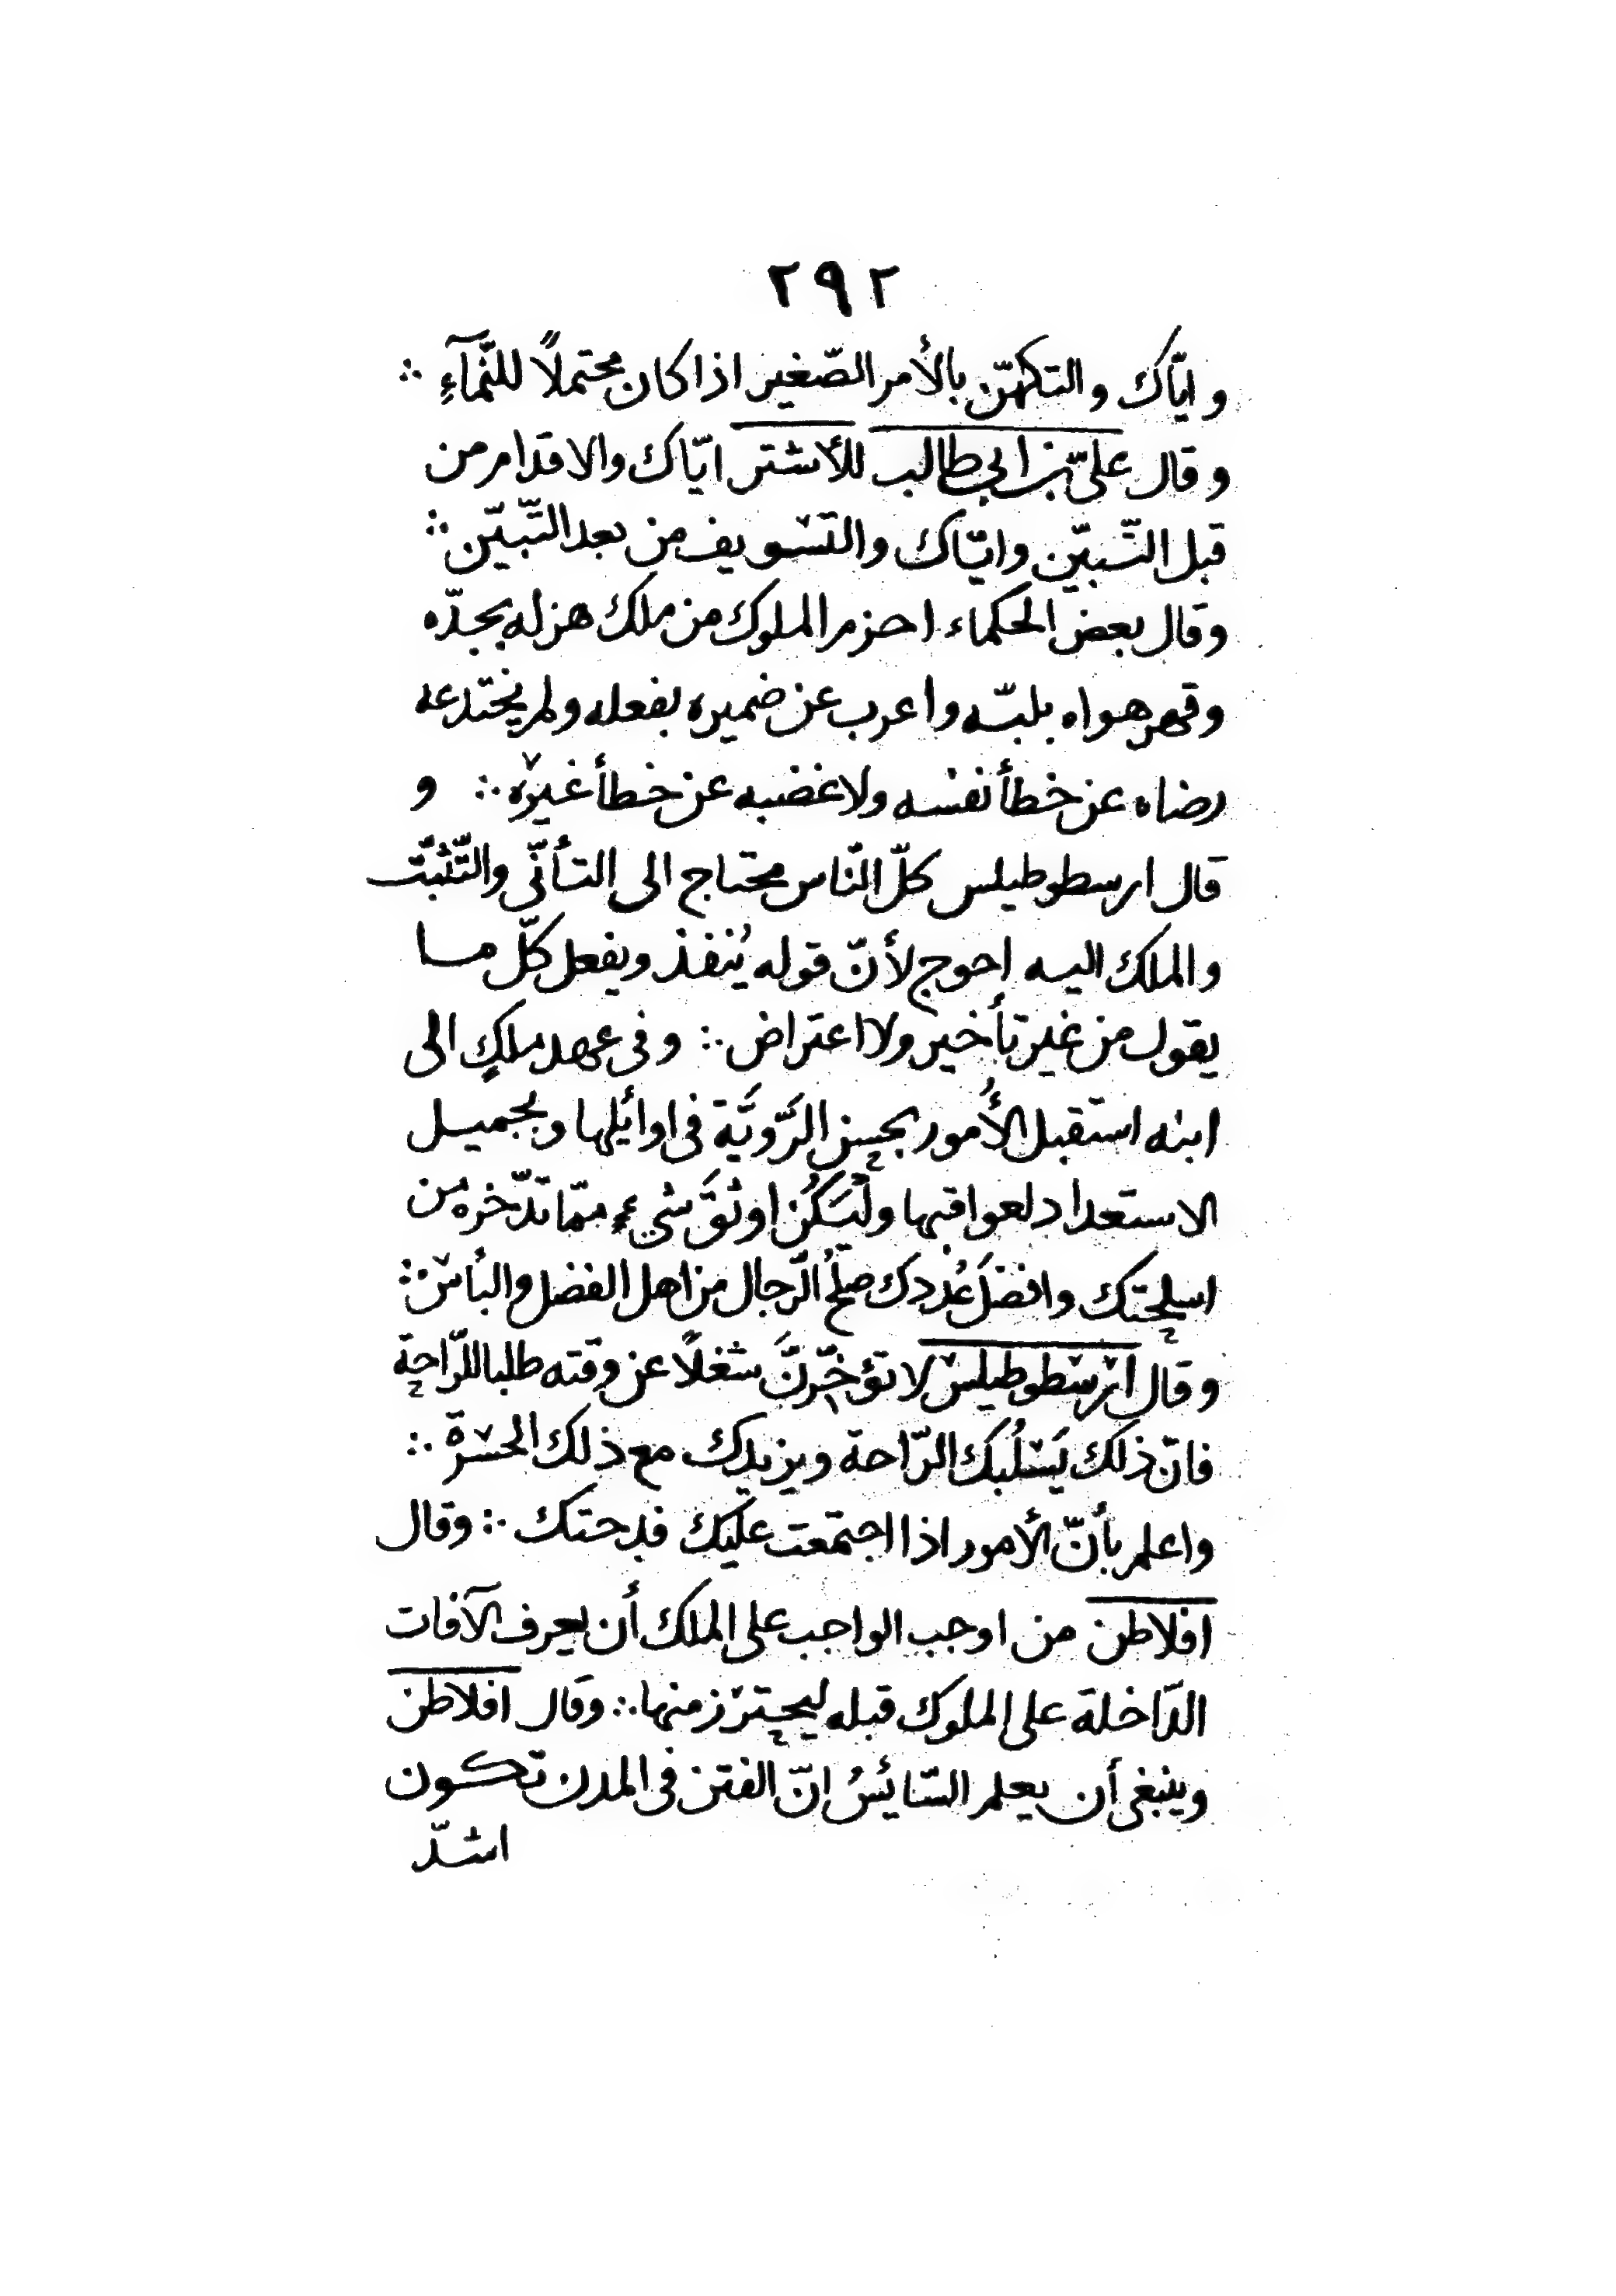 ٢٩٢
و ايّاك والتكهّن بالأمر الصّغير اذا كان محتملًا للنَّمآءِ ∴
وقال علىّ بن ابى طالب للأشتر ايّاك والاقدام من
قبل التّبيّن وايّاك والتسويف من بعد التّبيّن ∴
وقال بعض الحكماء احزم الملوك من ملك هزله بجدّه
وقهر هواه بلبّه واعرب عن ضميره بفعله ولم يختدعه
رضاه عن خطأ نفسه ولا غضبه عن خطأ غيره ∴ و
قال ارسطوطيلس كلّ النّاس محتاج الى التأنّى والتّثبّت
والملك اليه احوج لأنّ قوله يُنفذ ويفعل كلّ ما
يقول من غير تأخير ولا اعتراض ∴ وفى عهد ملكٍ الى
ابنه استقبل الأُمور بحسن الرَّويَّة فى اوائلها وبجميل
الاستعداد لعواقبها ولْيَكُن اوثقَ شيءٍ ممّا تدّخره من
اسلحتك وافضلَ عُددك صلحُ الرّجال من اهل الفضل والبأس ∴
وقال ارسطوطيلس لا تؤخّرنَّ شغلًا عن وقته طلبا للرّاحة
فانّ ذلك يَسْلُبك الرّاحة ويزيدك مع ذلك الحسْرة ∴
واعلم بأنّ الأمور اذا اجتمعت عليك فدحتك ∴ وقال
افلاطن من اوجب الواجب على الملك أن يعرف الآفات
الدّاخلة على الملوك قبله ليحترز منها ∴ وقال افلاطن
وينبغى أن يعلم السّائسُ انّ الفتن فى المدن تكون
اشدّ